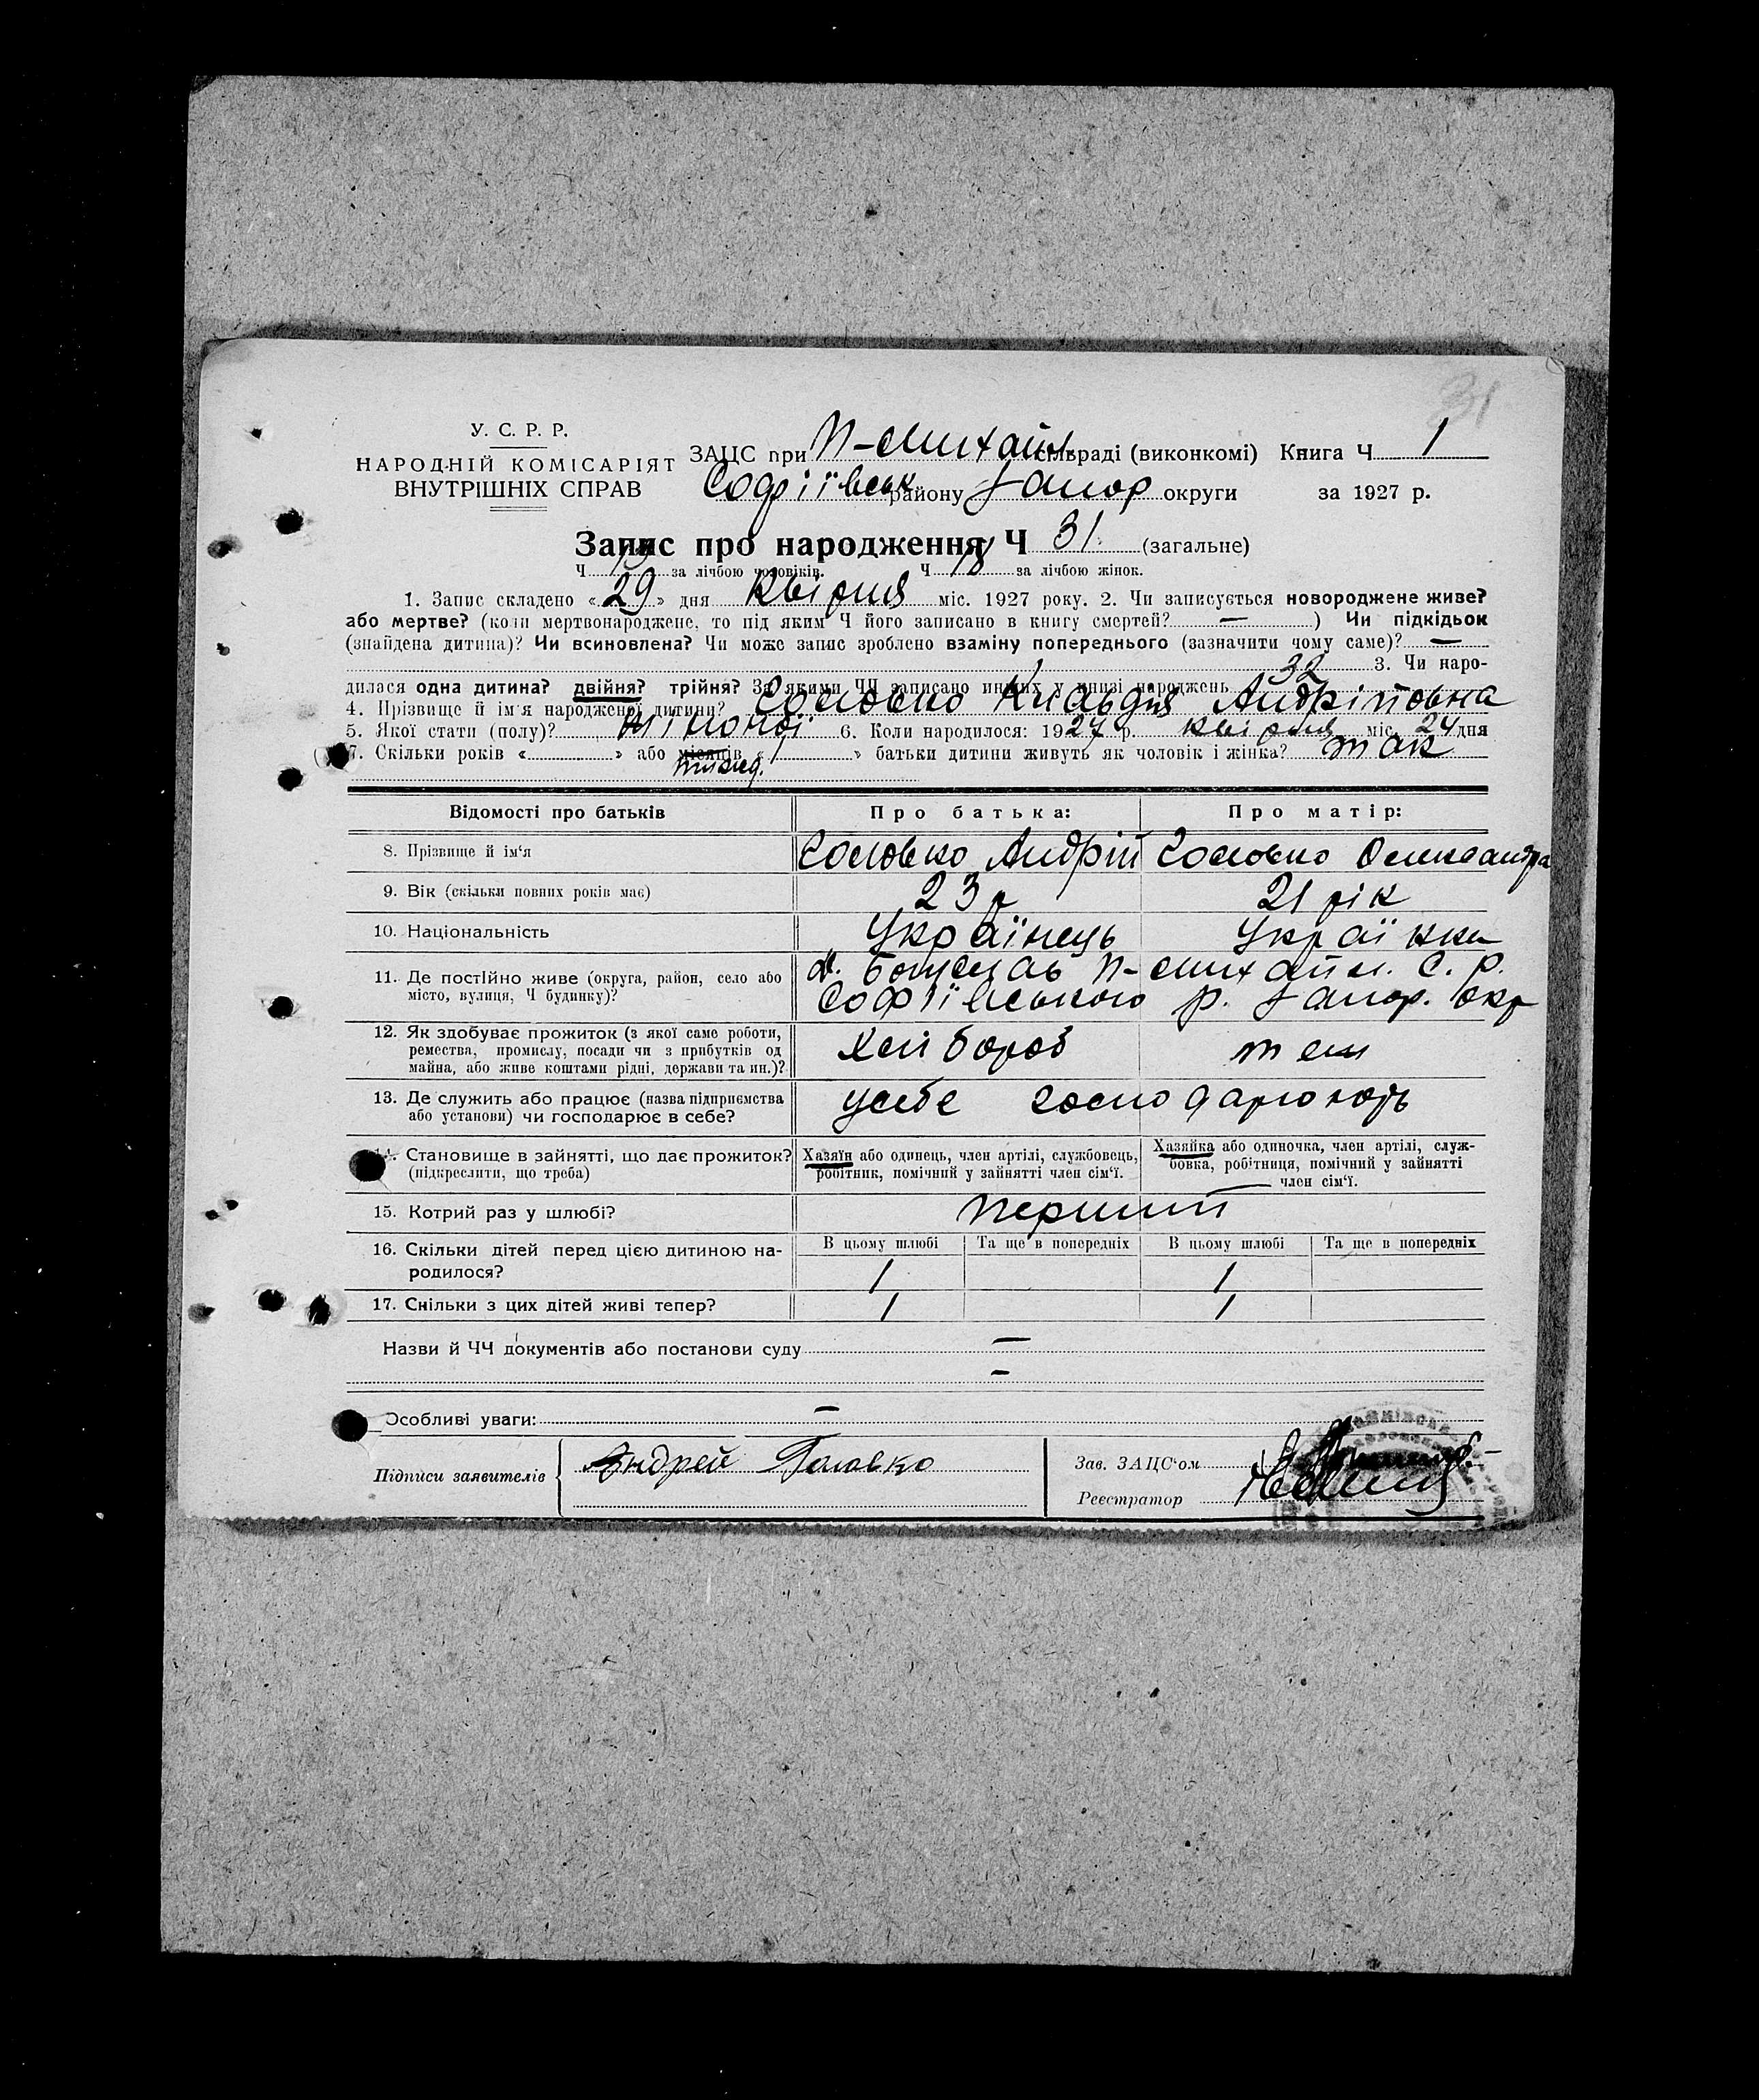 31
У. С. Р. Р.
НАРОДНІЙ КОМІСАРІЯТ
ВНУТРІШНІХ СПРАВ
ЗАЦС при П-Михайл. сільраді (виконкомі) Книга Ч 1
Софіївськ району Запор округи за 1927 р.
Запис про народження Ч 31 (загальне)
Ч 13 за лічбою чоловіків. Ч 18 за лічбою жінок.
1. Запис складено « 29 » дня Квітня міс. 1927 року. 2. Чи записується новороджене живе?
або мертве? (коли мертвонароджене, то під яким Ч його записано в книгу смертей? — ) Чи підкідьок
(знайдена дитина)? Чи всиновлена? Чи може запис зроблено взаміну попереднього (зазначити чому саме)? —
32 3. Чи наро-
дилася одна дитина? двійня? трійня? За якими ЧЧ записано инших у книзі народжень
4. Прізвище й ім'я народженої дитини? Головко Клавдія Андріївна
5. Якої стати (полу)? жіночої 6. Коли народилося: 1927 р. квітня міс. 24 дня
7. Скільки років « » або місяців « 1 » батьки дитини живуть як чоловік і жінка? так
Відомості про батьків Про батька: Про матір:
8. Прізвище й ім'я Головко Андрій Головко Олександра
9. Вік (скільки повних років має) 23 р 21 рік
10. Національність Українець Українка
11. Де постійно живе (округа, район, село або П-Михайл. С. Р.
місто, вулиця, Ч будинку)? Софіївського р. Запор. окр
12. Як здобуває прожиток (з якої саме роботи,
ремества, промислу, посади чи з прибутків од Хлібороб теж
майна, або живе коштами рідні, держави та ин.)?
13. Де служить або працює (назва підприємства
або установи) чи господарює в себе? усебе господарюють
14. Становище в зайнятті, що дає прожиток? Хазяїн або одинець, член артілі, службовець, Хазяйка або одиночка, член артілі, служ-
(підкреслити, що треба) робітник, помічний у зайнятті член сім'ї. бовка, робітниця, помічний у зайнятті
член сім'ї.
15. Котрий раз у шлюбі? перший
16. Скільки дітей перед цією дитиною на- В цьому шлюбі Та ще в попередніх В цьому шлюбі Та ще в попередніх
родилося? 1 1
17. Скільки з цих дітей живі тепер? 1 1
Назви й ЧЧ документів або постанови суду —
—
Особливі уваги: —
Підписи заявителів Андрей Головко Зав. ЗАЦС'ом
Реєстратор